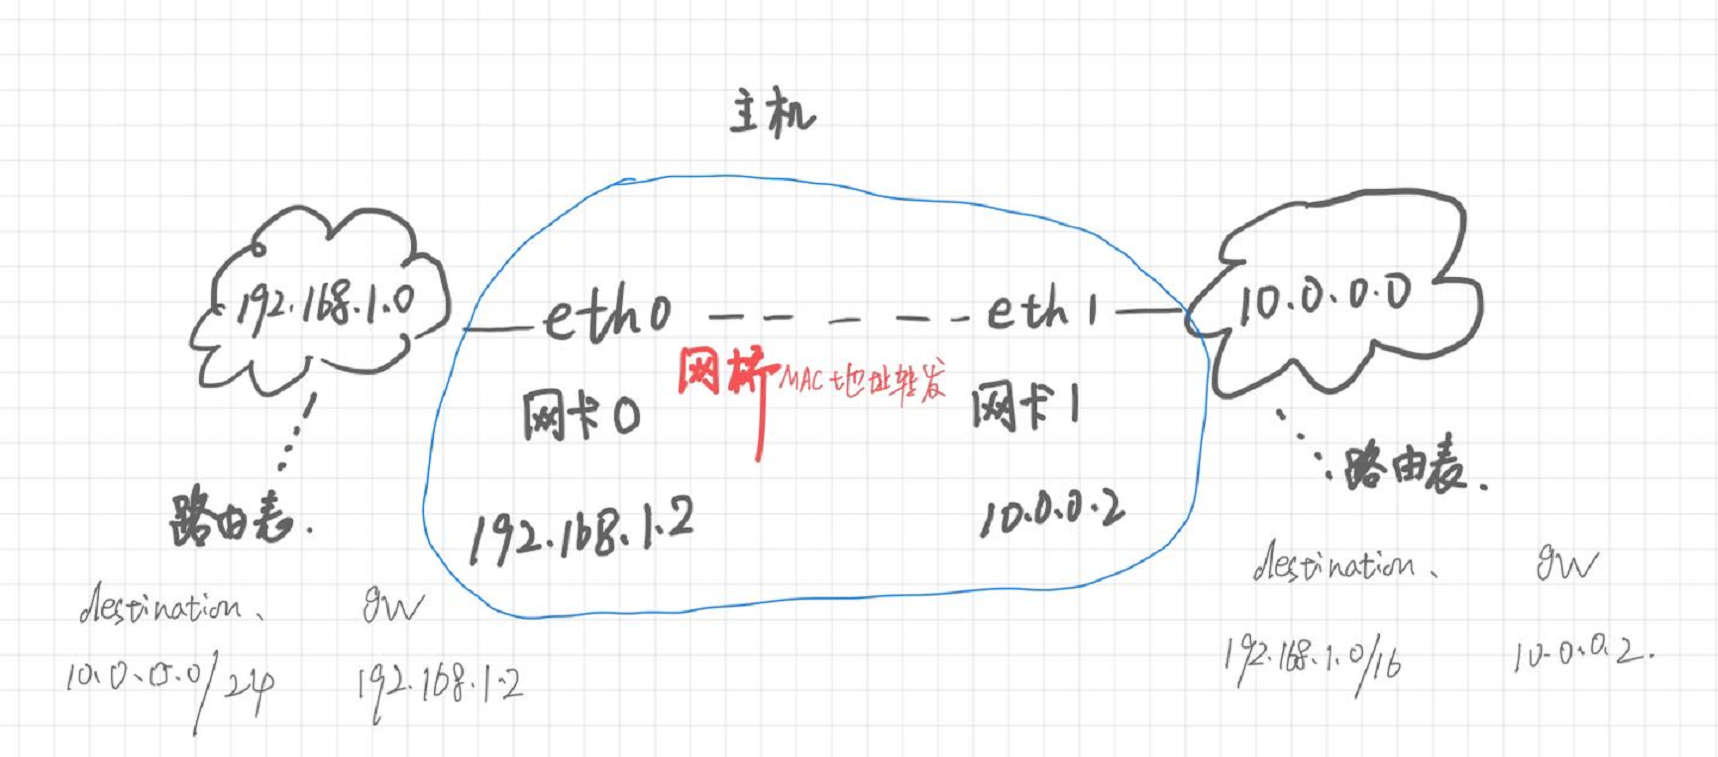 主机
192.168.1.0
eth0
eth1
10.0.0.0
网桥 MAC地址转发
网卡0
网卡1
路由表.
路由表.
192.168.1.2
10.0.0.2
destination、 gw
10.0.0.0/24 192.168.1.2
destination、 gw
192.168.1.0/16 10.0.0.2.